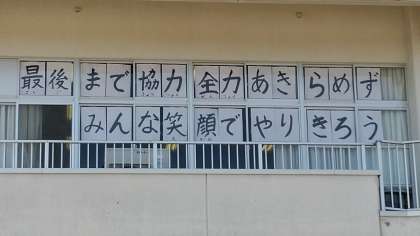 最後まで協力全力あきらめず
みんな笑顔でやりきろう